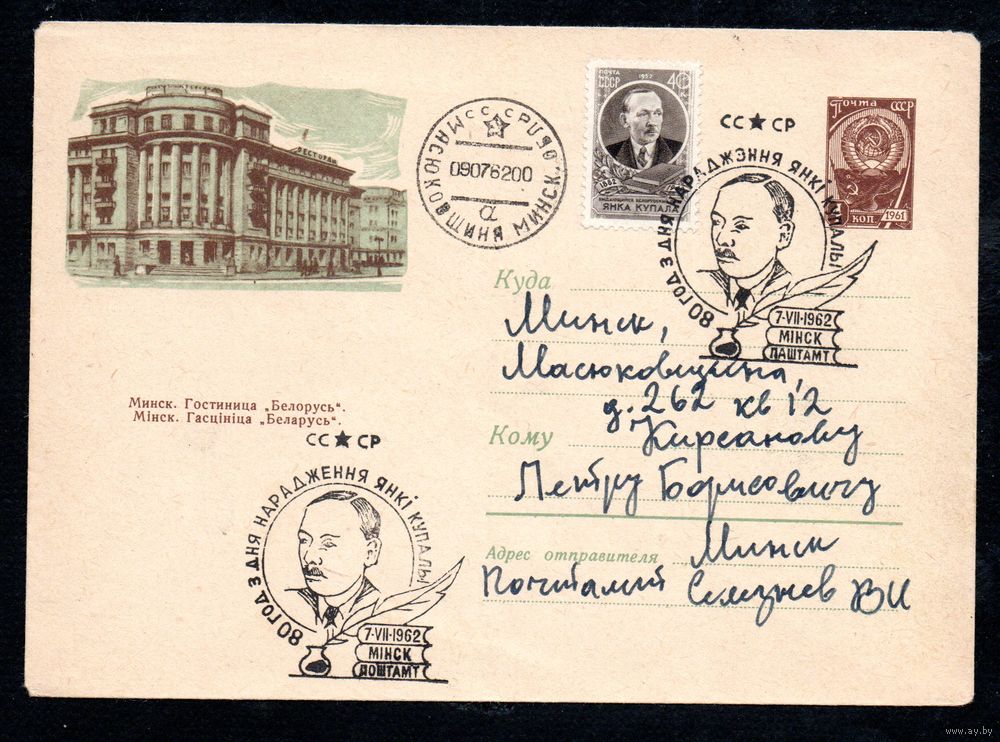 РЕСТОРАН
МАСЮКОВЩИНА МИНСК.
09076200
α
ПОЧТА
1957
СССР
40
К
1882
ЯНКА КУПАЛА
СС★СР
Почта СССР
КОП
1961
80 ГОД З ДНЯ НАРАДЖЭННЯ ЯНКІ КУПАЛЫ
7-VII-1962
МІНСК
ПАШТАМТ
Куда
Минск,
Масюковщина,
д. 262 кв 12
Кому
Кирсанову
Петру Борисовичу
Адрес отправителя
Минск
Почтамт Селезнев ВИ
Минск. Гостиница „Белорусь“.
Мінск. Гасцініца „Беларусь“.
СС★СР
80 ГОД З ДНЯ НАРАДЖЕННЯ ЯНКІ КУПАЛЫ
7-VII-1962
МІНСК
ПОШТАМТ
www.ay.by